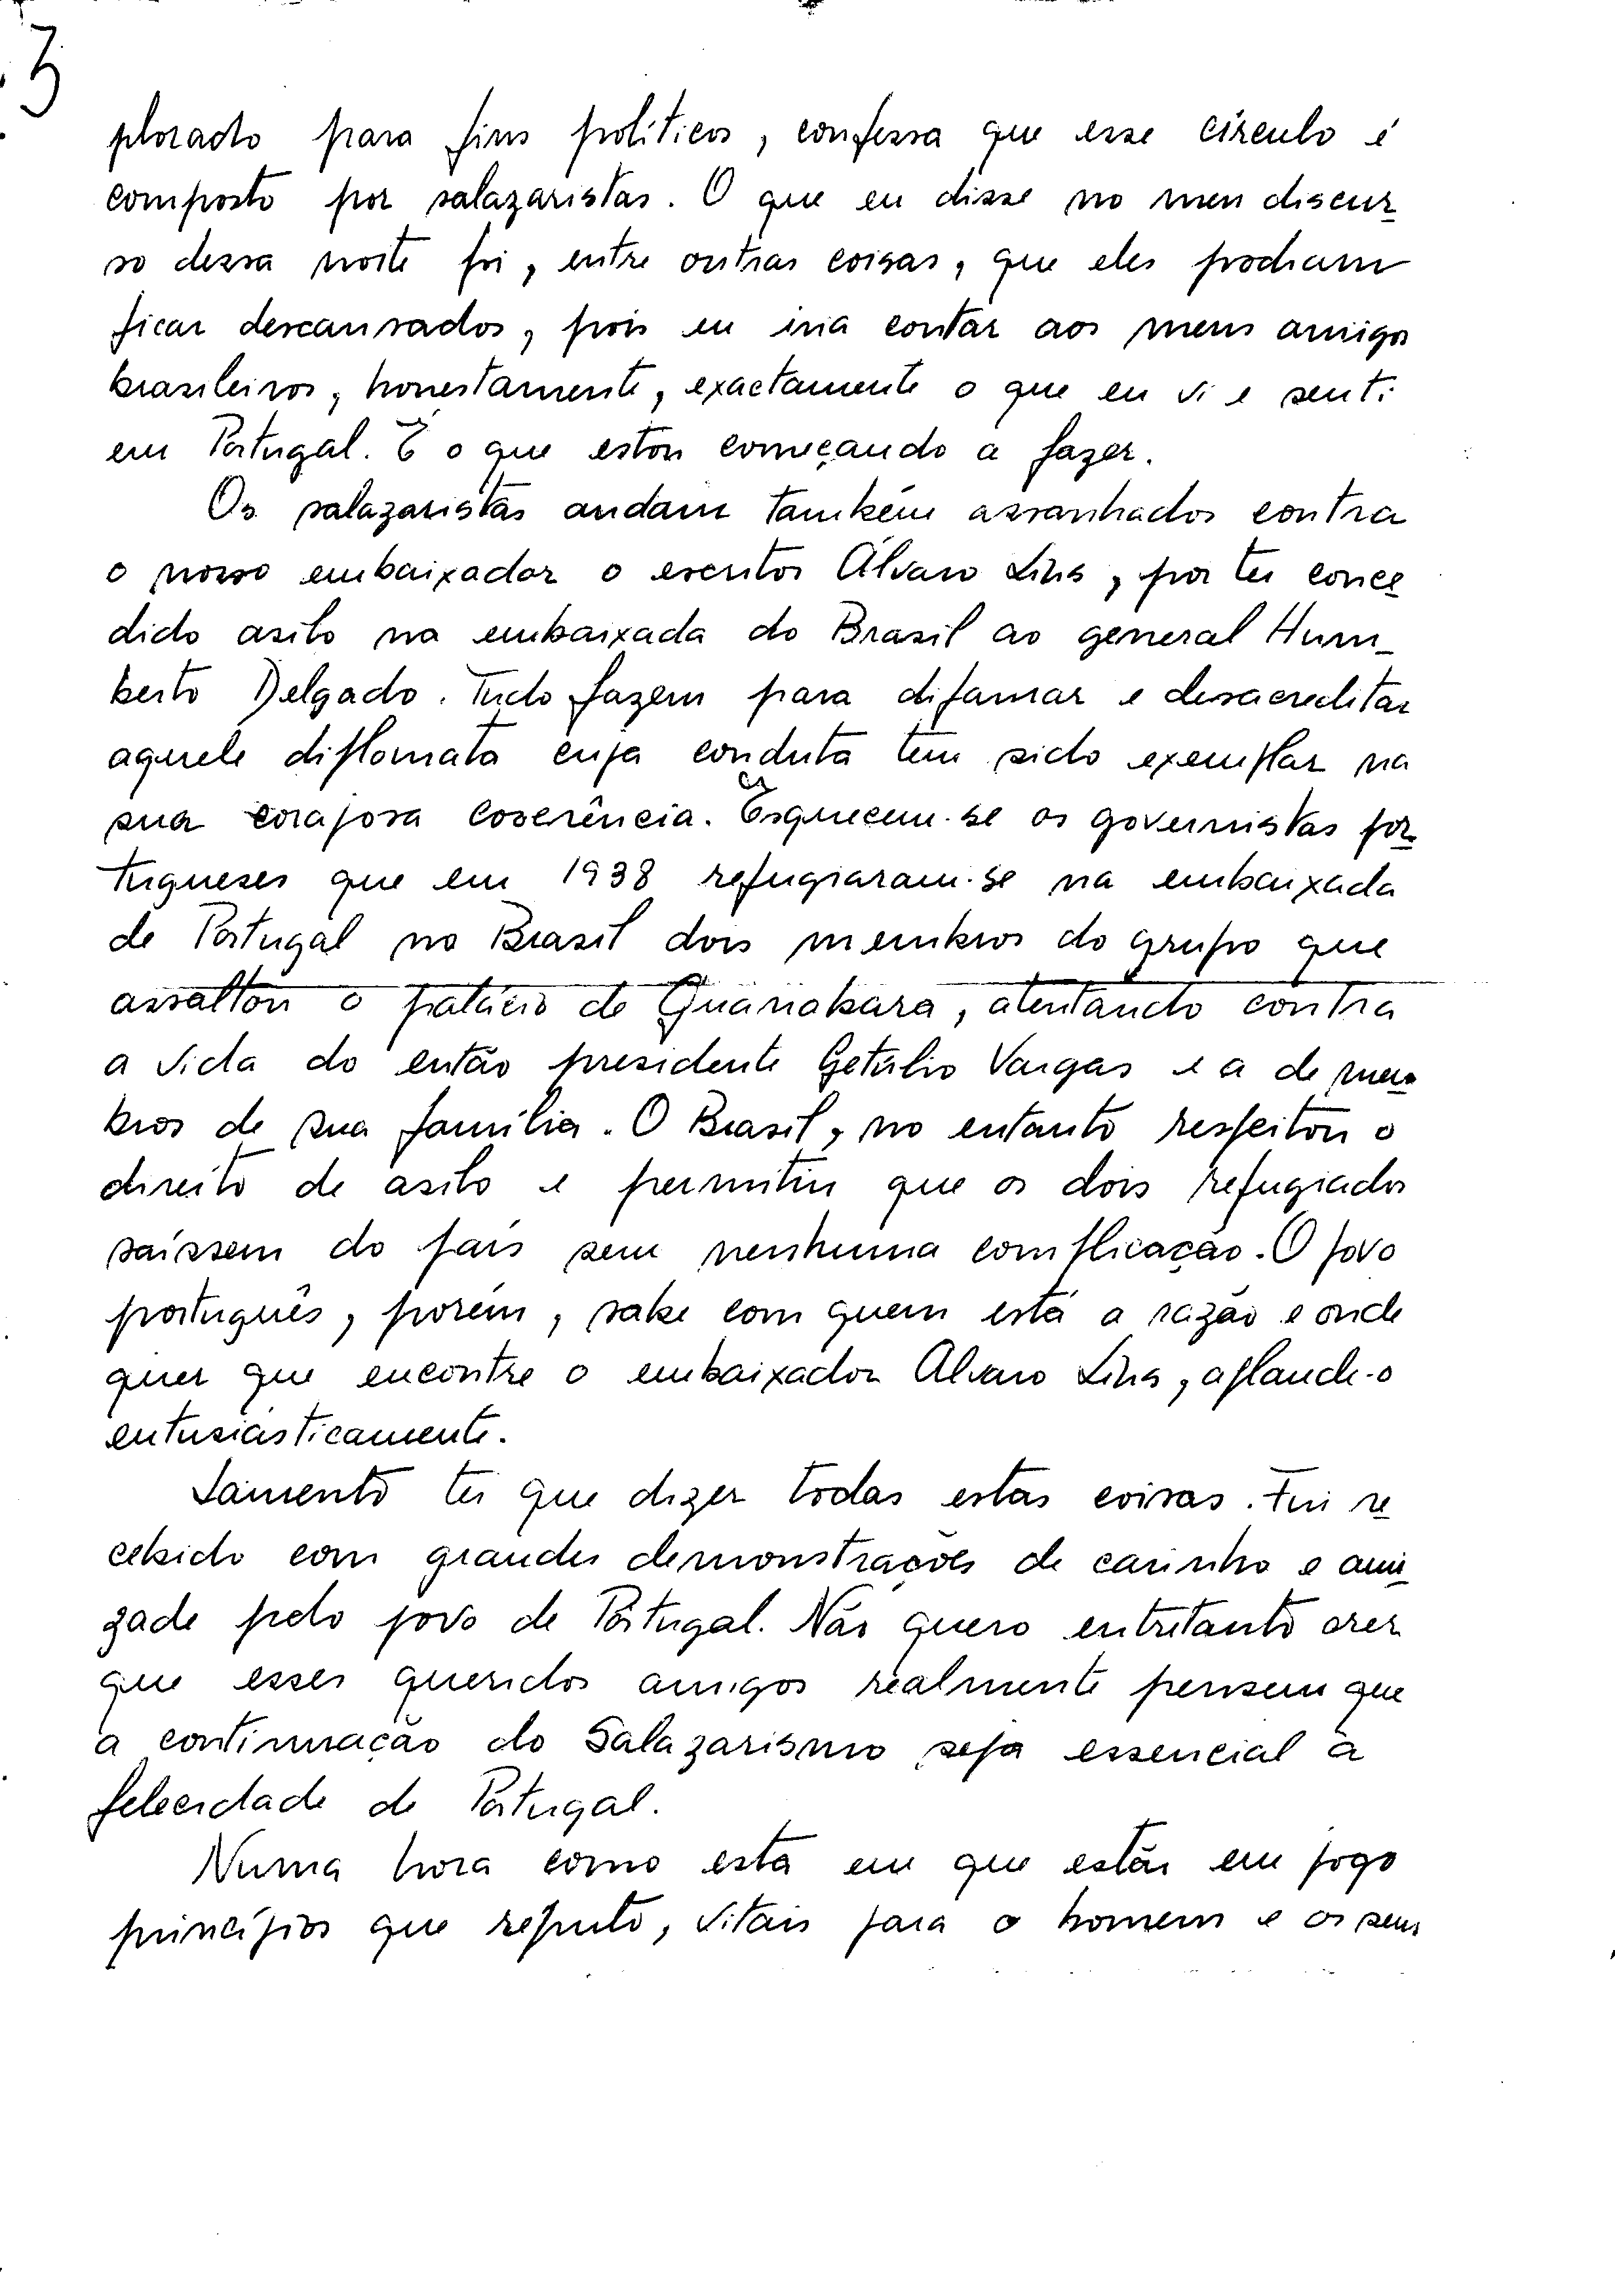 3
plorado para fins políticos, confessa que esse círculo é
composto por salazaristas. O que eu disse no meu discur
so dessa noite foi, entre outras coisas, que eles podiam
ficar descansados, pois eu iria contar aos meus amigos
brasileiros, honestamente, exactamente o que eu vi e senti
em Portugal. É o que estou começando a fazer.
Os salazaristas andam também assanhados contra
o nosso embaixador o escritor Álvaro Lins, por ter conce
dido asilo na embaixada do Brasil ao general Hum-
berto Delgado. Tudo fazem para difamar e desacreditar
aquele diplomata cuja conduta tem sido exemplar na
sua corajosa coerência. Esquecem-se os governistas por
tugueses que em 1938 refugiaram-se na embaixada
de Portugal no Brasil dois membros do grupo que
assaltou o palácio de Guanabara, atentando contra
a vida do então presidente Getúlio Vargas e a de mem
bros de sua família. O Brasil, no entanto respeitou o
direito de asilo e permitiu que os dois refugiados
saíssem do país sem nenhuma complicação. O povo
português, porém, sabe com quem está a razão e onde
quer que encontre o embaixador Alvaro Lins, aplaude-o
entusiàsticamente.
Lamento ter que dizer todas estas coisas. Fui re
cebido com grandes demonstrações de carinho e ami
zade pelo povo de Portugal. Não quero entretanto crer
que esses queridos amigos realmente pensem que
a continuação do Salazarismo seja essencial à
felecidade de Portugal.
Numa hora como esta em que estão em jogo
princípios que reputo, vitais para o homem e os seus